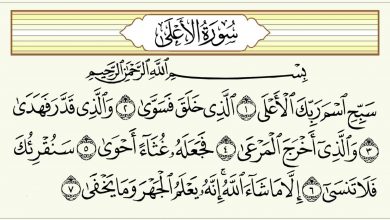 سُورَةُ الأَعْلَى
بِسْمِ اللَّهِ الرَّحْمَٰنِ الرَّحِيمِ
سَبِّحِ ٱسْمَ رَبِّكَ ٱلْأَعْلَى ١ ٱلَّذِى خَلَقَ فَسَوَّىٰ ٢ وَٱلَّذِى قَدَّرَ فَهَدَىٰ
٣ وَٱلَّذِىٓ أَخْرَجَ ٱلْمَرْعَىٰ ٤ فَجَعَلَهُۥ غُثَآءً أَحْوَىٰ ٥ سَنُقْرِئُكَ
فَلَا تَنسَىٰٓ ٦ إِلَّا مَا شَآءَ ٱللَّهُ إِنَّهُۥ يَعْلَمُ ٱلْجَهْرَ وَمَا يَخْفَىٰ ٧